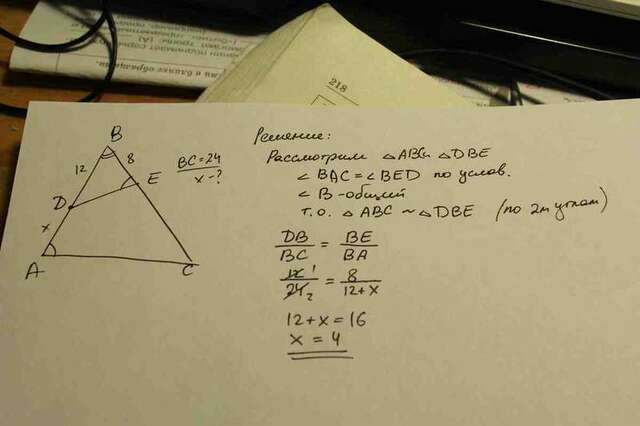 218
B
12
8
BC=24
x-?
E
D
x
A
C
Решение:
Рассмотрим △ABC и △DBE
∠BAC = ∠BED по услов.
∠B - общий
т.о. △ABC ~ △DBE (по 2м углам)
DB/BC = BE/BA
12 1/24 2 = 8/12+x
12+x = 16
x = 4